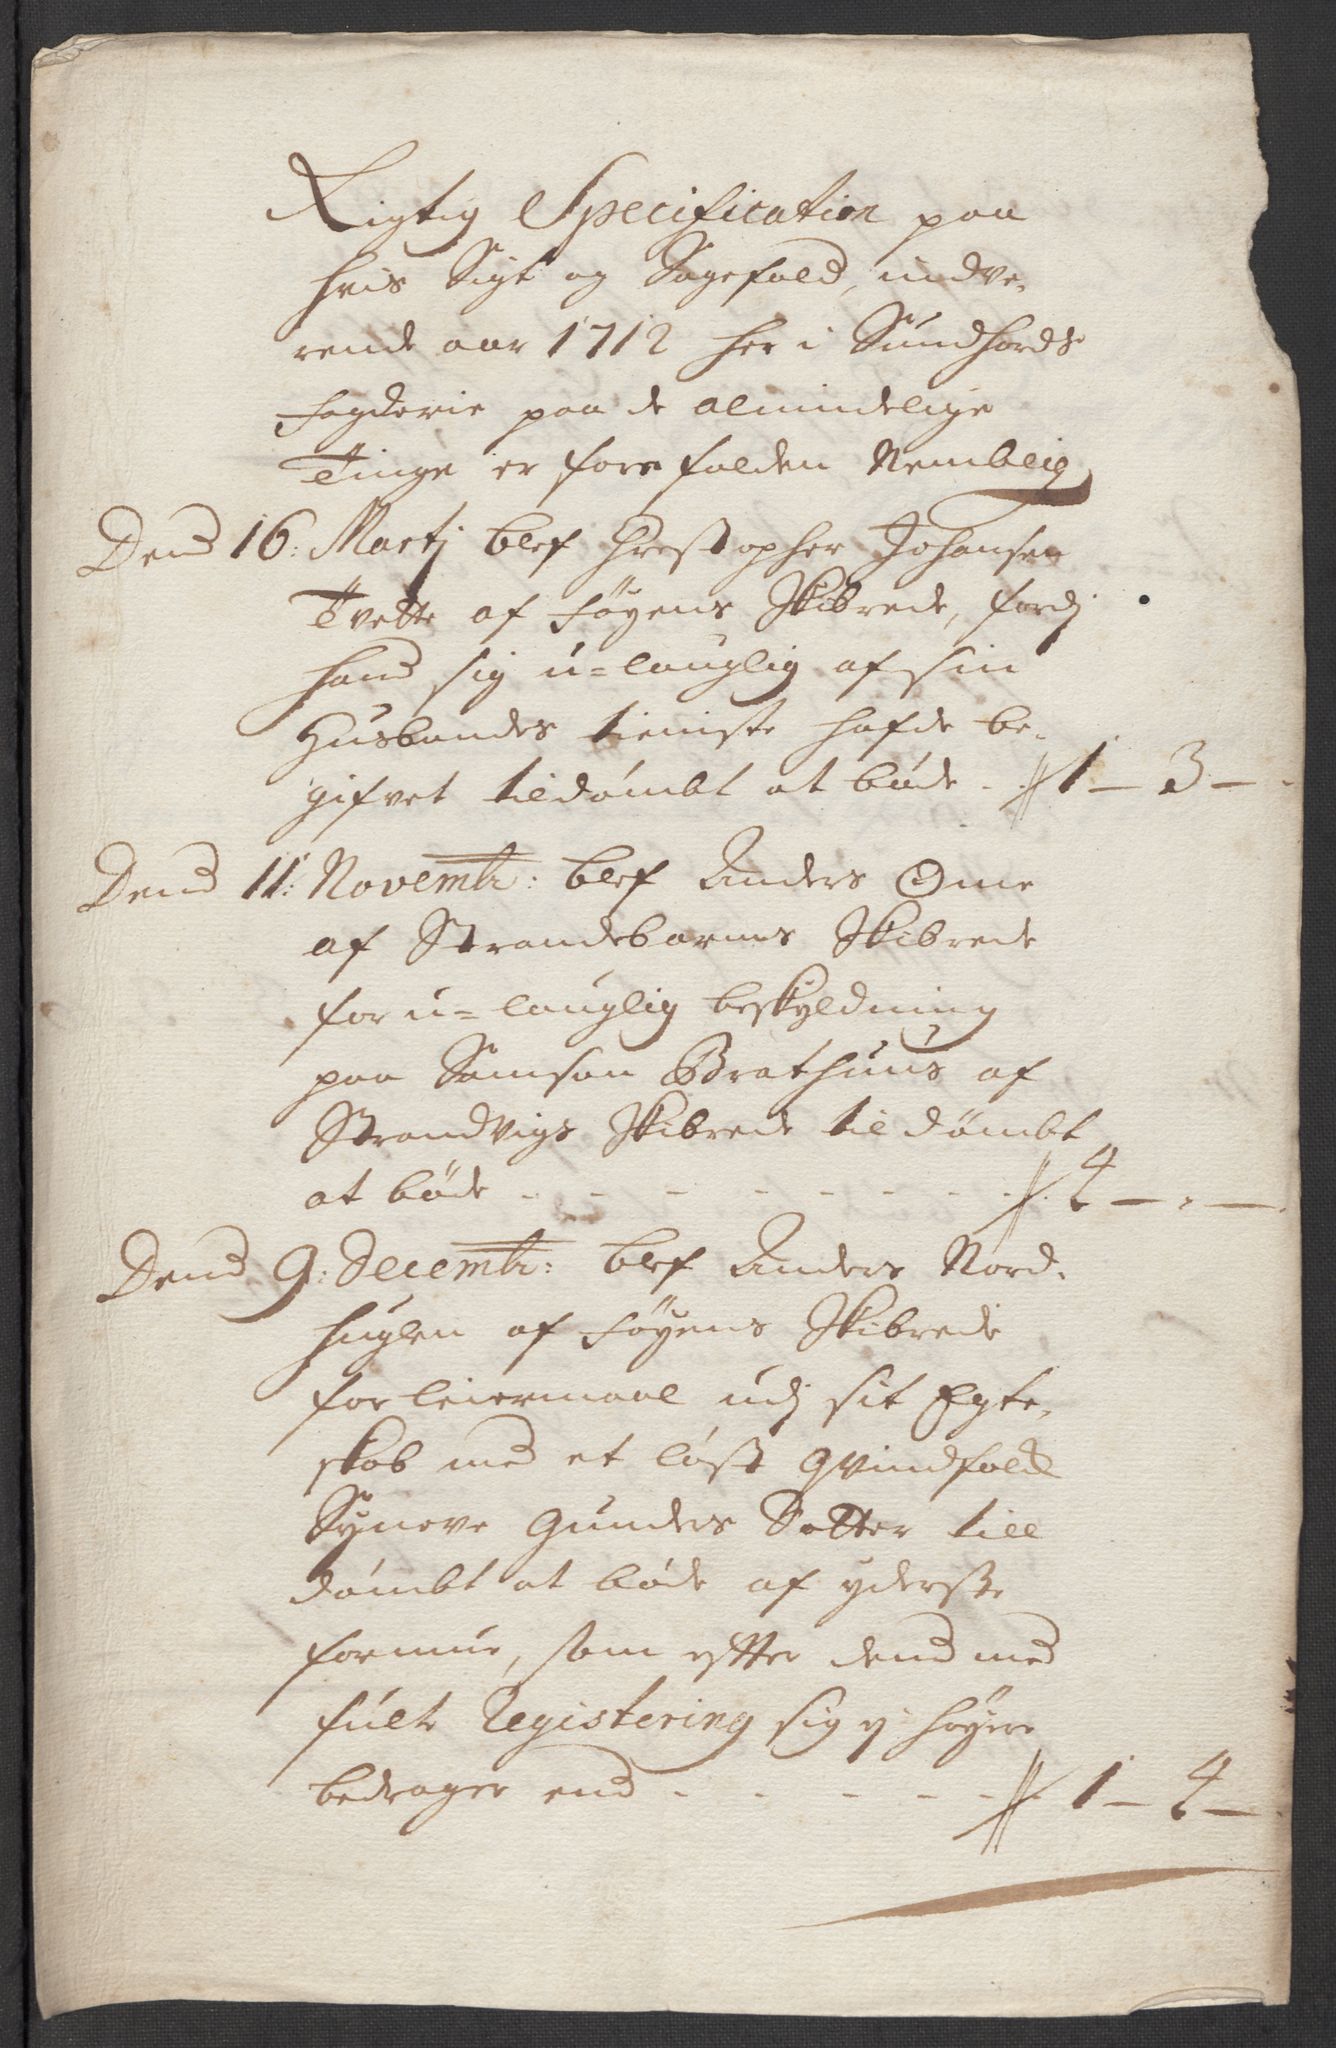 Rigtig Specification paa
hvis Sigt og Sagefald, indve-
rende aar 1712 her i Sundhords
Fogderie paa de almindelige
Tinge er forefalden Nemblig
Dend 16: Martj blef Christopher Johansen
Tvette af Føyens Skibrede, fordj
hand sig u=lauglig af sin
Husbondes tieniste hafde be-
gifvet tildømbt at bøde - 1 - 3 -
Dend 11: Novembr: blef Anders Ome
af Strandebarms Skibrede
for u=lauglig beskyldning
paa Samson Brathuus af
Strandvigs Skibrede til dømbt
at bøde - - - - - - - 4 - - -
Dend 9: Decembr: blef Anders Nord-
huglen af Føyens Skibrede
for leiermaal udj sit Egte-
skab med et løst qvindfolk
Synove Gunders Dotter till
dømbt at bøde af yderste
formue, som efter dend med
fulte Registering sig ej høyere
bedrager end - - - - - 1 - 4 -